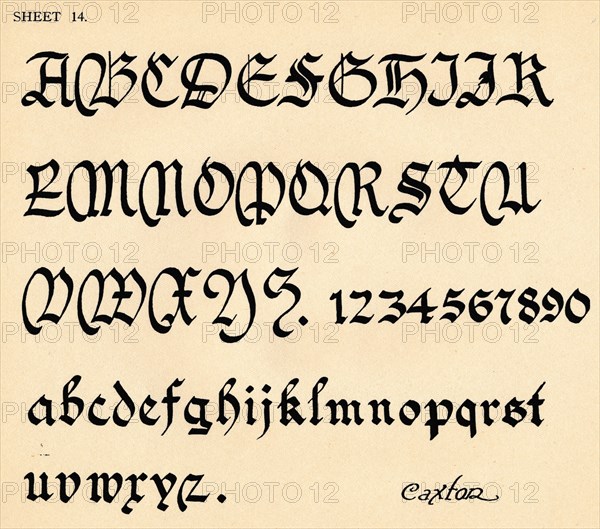 SHEET 14.
ABCDEFGHIJK
LMNOPQRSTU
VWXYZ. 1234567890
abcdefghijklmnopqrst
uvwxyz.
Caxton